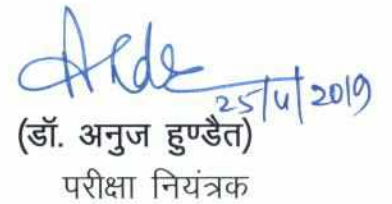 25/4/2019
(डॉ. अनुज हुण्डैत)
परीक्षा नियंत्रक